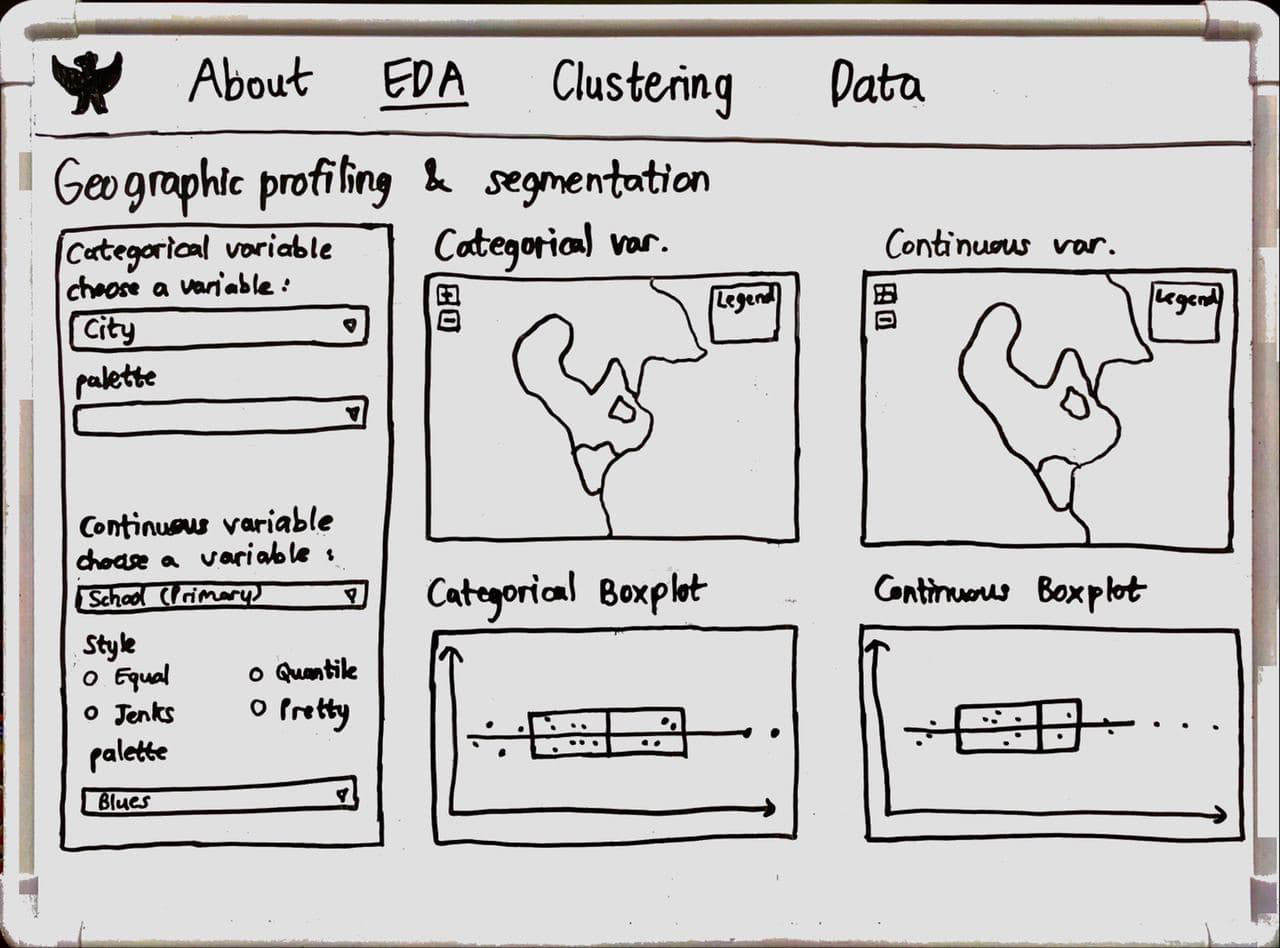 About EDA Clustering Data
Geographic profiling & segmentation
Categorical variable
choose a variable:
City
palette
Continuous variable
choose a variable:
School (Primary)
Style
Equal Quantile
Jenks Pretty
palette
Blues
Categorical var.
Legend
Continuous var.
Legend
Categorical Boxplot
Continuous Boxplot